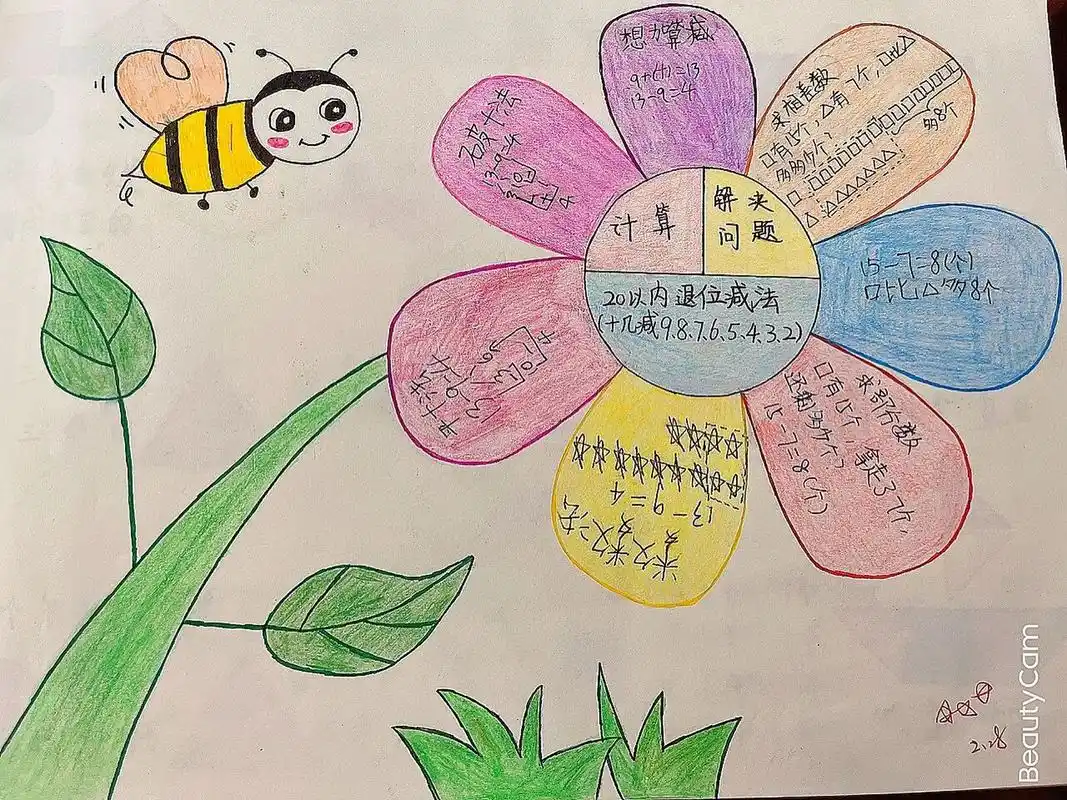 计算
解决
问题
20以内退位减法
(十几减9、8、7、6、5、4、3、2)
想加算减
9+(4)=13
13-9=4
求相差数
口有15个,△有7个,口比△
多多少个?
多8个
15-7=8(个)
口比△多8个
求部分数
口有15个,拿走了7个,
还剩多少个?
15-7=8(个)
数数法
13-9=4
平十法
13-9=4
破十法
13-9=4
2.28
BeautyCam